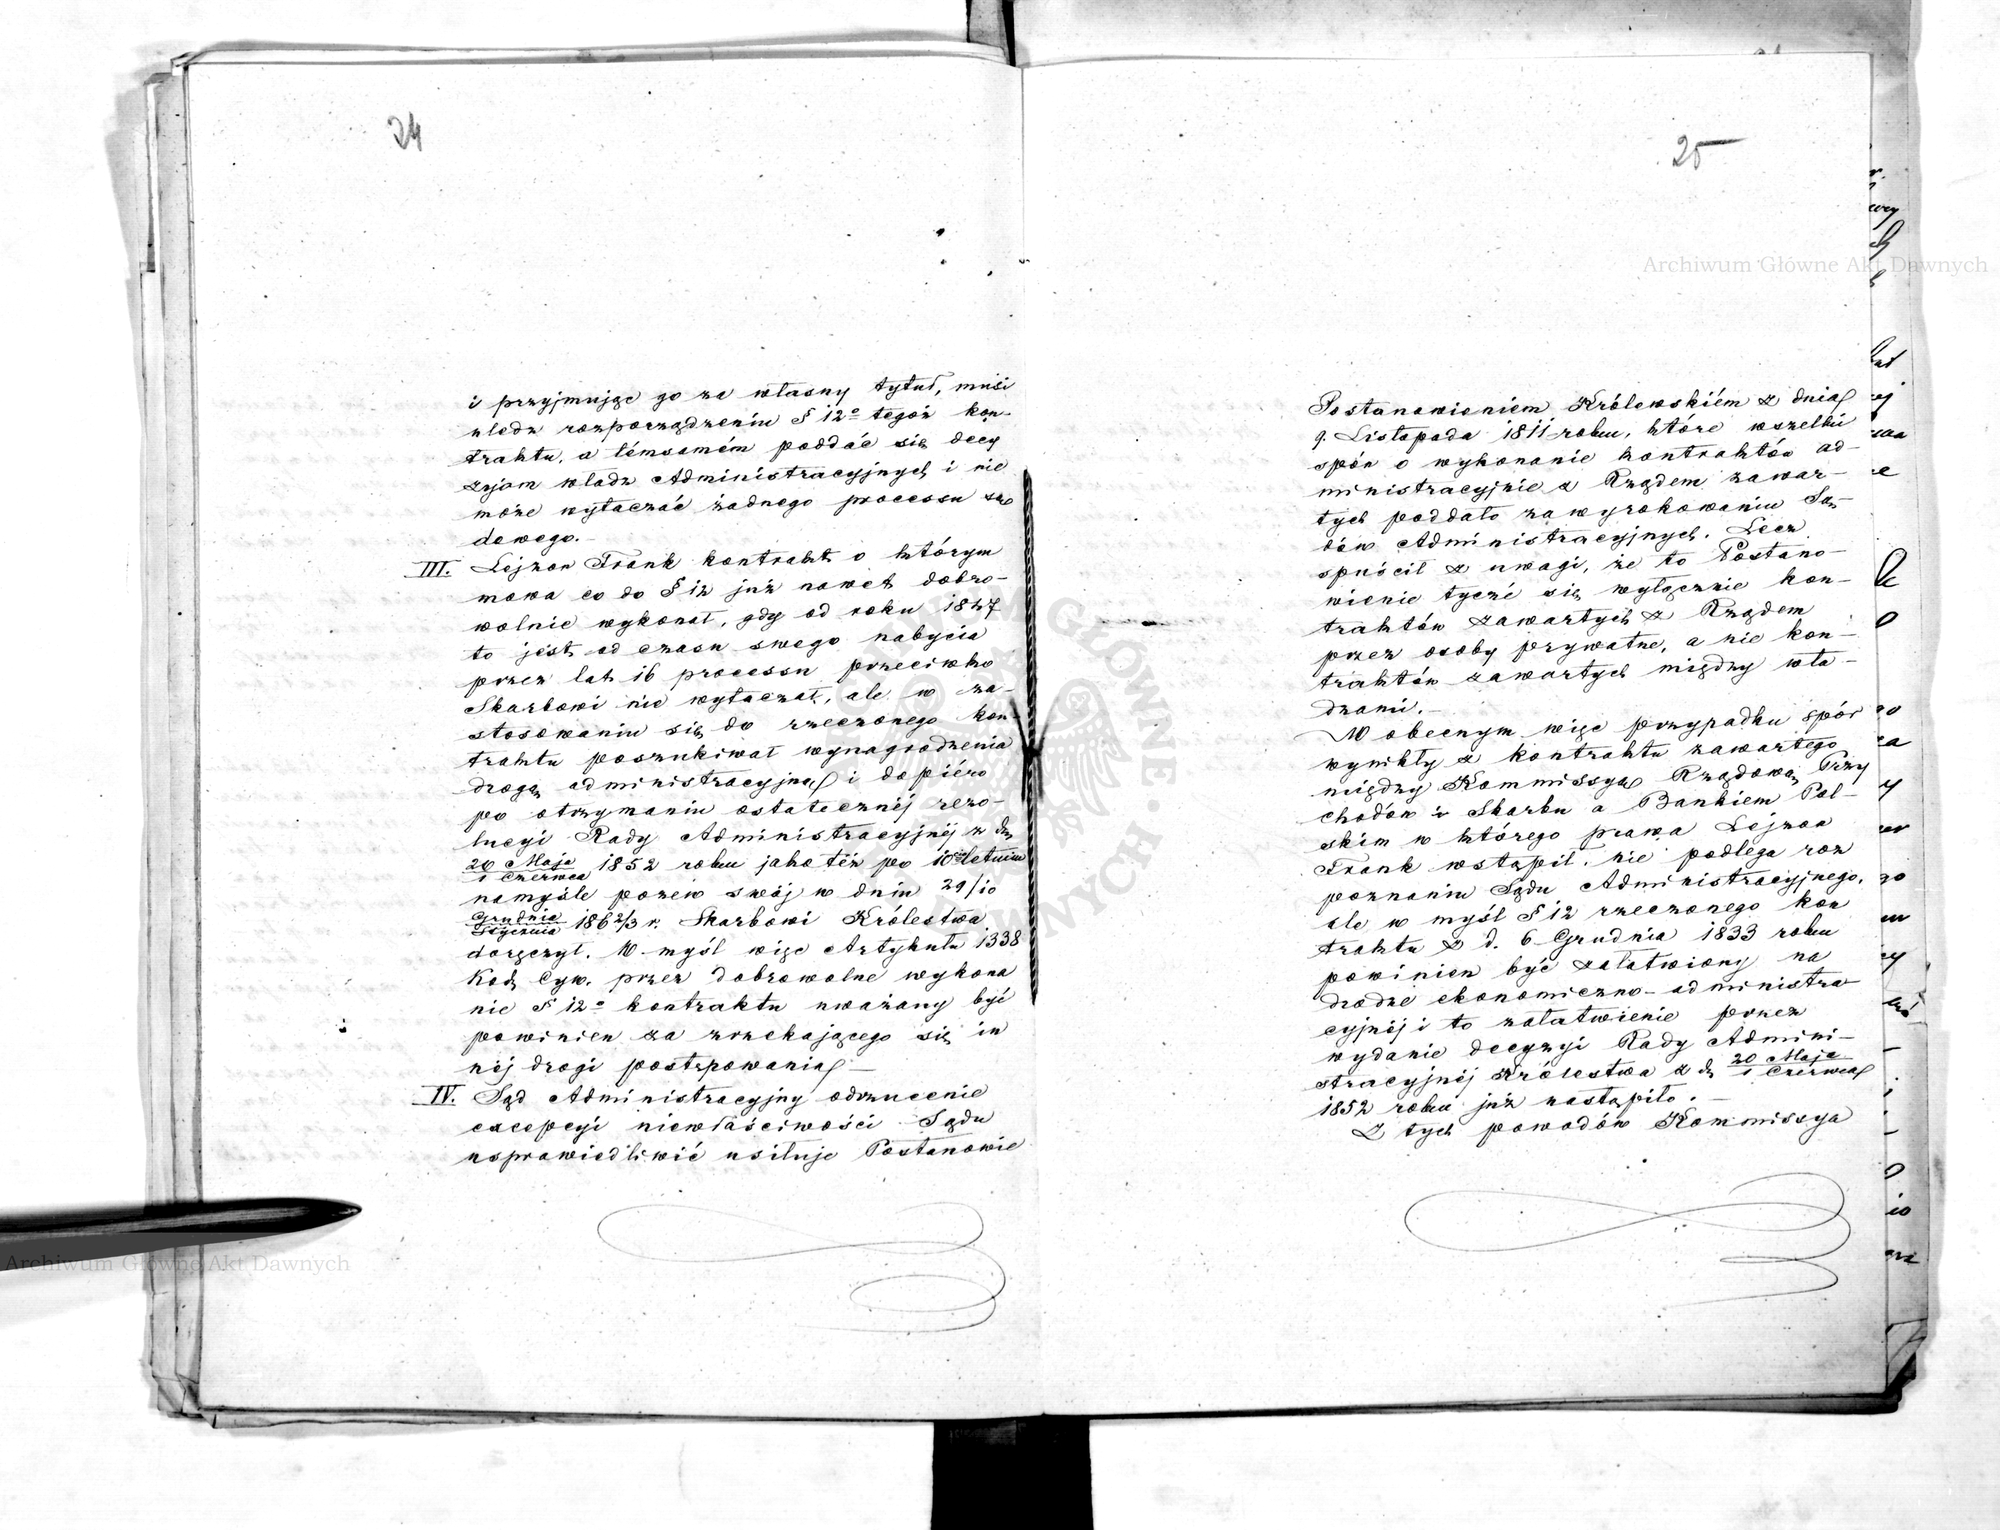 24
i przyjmując go za własny tytuł, musi
uledz rozporządzeniu § 12º tegoż kon-
traktu, a témsamém poddać się decy
zyom władz Administracyjnych i nie
może wytaczać żadnego processu są
dowego.—
III. Lejzor Frank kontrakt o którym
mowa co do § 12 już nawet dobro-
wolnie wykonał, gdy od roku 1847
to jest od czasu swego nabycia
przez lat 16 processu przeciwko
Skarbowi nie wytaczał, ale w za-
stosowaniu się do rzeczonego kon-
traktu poszukiwał wynagrodzenia
drogą administracyjną i dopiéro
po otrzymaniu ostatecznéj rezo-
lucyi Rady Administracyjnéj z d.
20 Maja
1 Czerwca 1852 roku jako téż po 10cio letnim
namyśle pozew swój w dniu 29/10
Grudnia
Stycznia 186 2/3 r. Skarbowi Królestwa
doręczył. W myśl więc Artykułu 1338
Kod. Cyw. przez dobrowolne wykona
nie § 12º kontraktu uważany być
powinien za zrzekającego się in
néj drogi postępowania.—
IV. Sąd Administracyjny odrzucenie
excepcyi niewłaściwości Sądu
usprawiedliwić usiłuje Postanowie
25
Postanowieniem Królewskiém z dnia
9. Listopada 1811 roku, które wszelki
spór o wykonanie kontraktów ad-
ministracyjnie z Rządem zawar-
tych poddało zawyrokowaniu Są-
dów Administracyjnych. Lecz
spuścił z uwagi, że to Postano-
wienie tyczé się wyłącznie kon-
traktów zawartych z Rządem
przez osoby prywatne, a nie kon-
traktów zawartych między wła-
dzami.—
W obecnym więc przypadku spór
wynikły z kontraktu zawartego
między Kommissyą Rządową Przy
chodów i Skarbu a Bankiem Pol-
skim w którego prawa Lejzor
Frank wstąpił, nie podlega roz
poznaniu Sądu Administracyjnego,
ale w myśl § 12 rzeczonego kon
traktu z d. 6 Grudnia 1833 roku
powinien być załatwiony na
drodze ekonomiczno-administra
cyjnéj i to załatwienie przez
wydanie decyzyi Rady Admini-
stracyjnéj Królestwa z d. 20 Maja
1 Czerwca
1852 roku już nastąpiło.—
Z tych powodów Kommissya
Archiwum Główne Akt Dawnych
Archiwum Główne Akt Dawnych